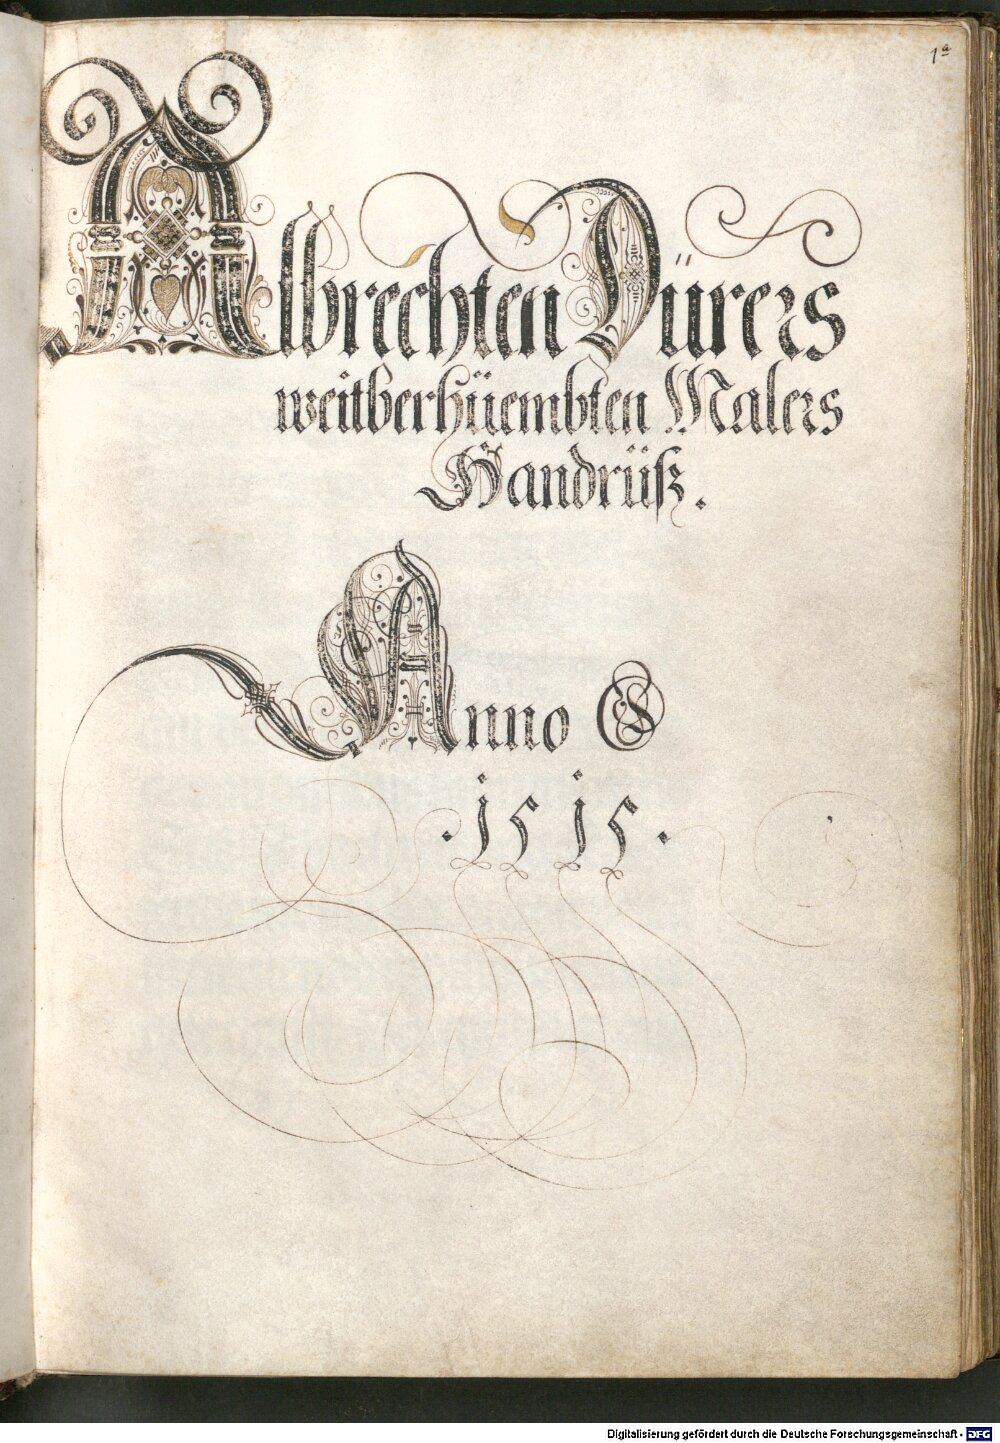 1a
Albrechten Dürers
weitberhüembten Malers
Handrüß.
Anno C
.1515.
Digitalisierung gefördert durch die Deutsche Forschungsgemeinschaft - DFG